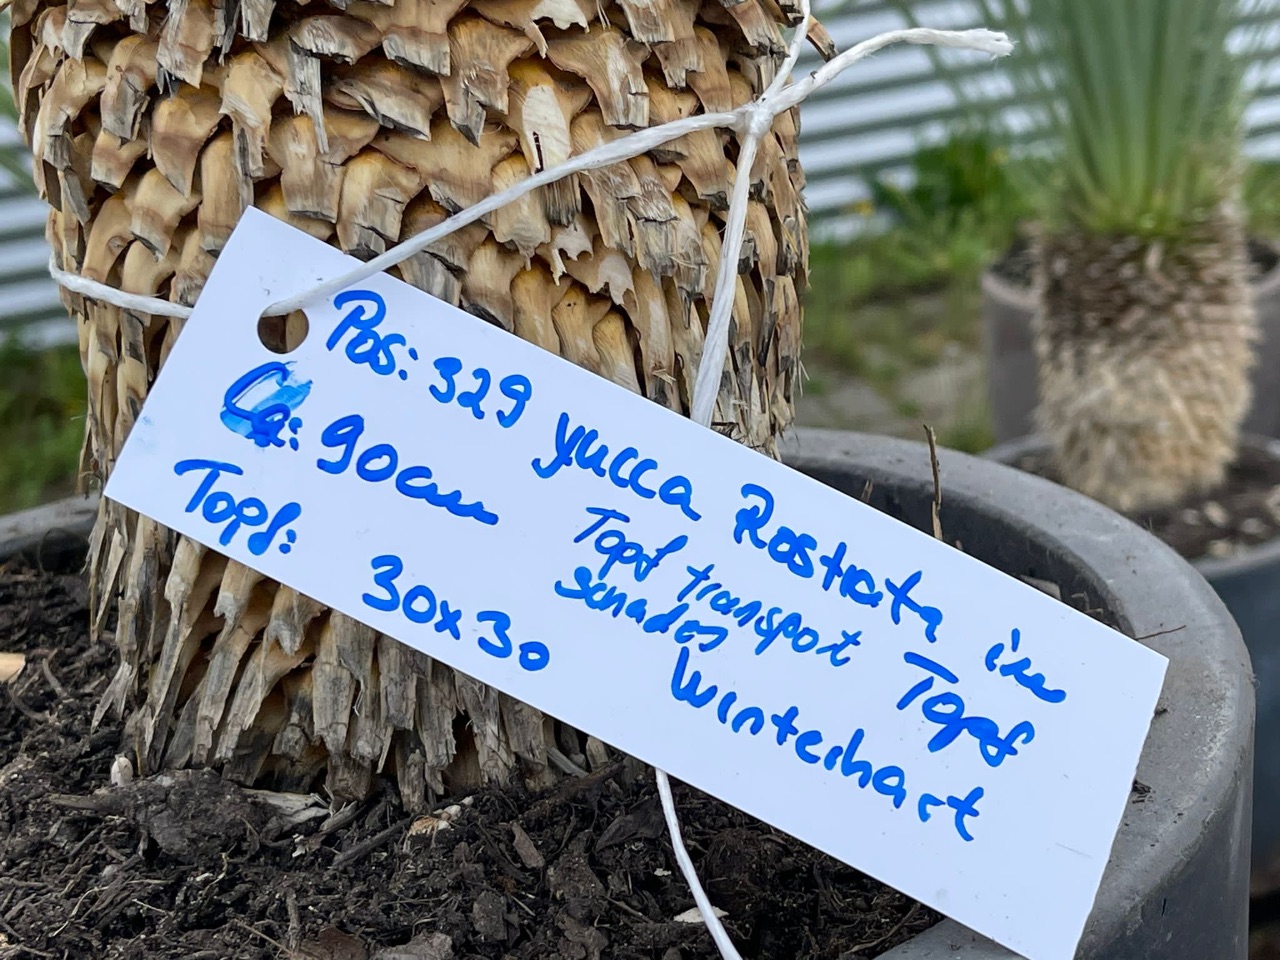 Pos: 329 yucca Rostrata im Topf
Ca: 90cm
Topf transport
schaden
Topf: 30x30
Winterhart